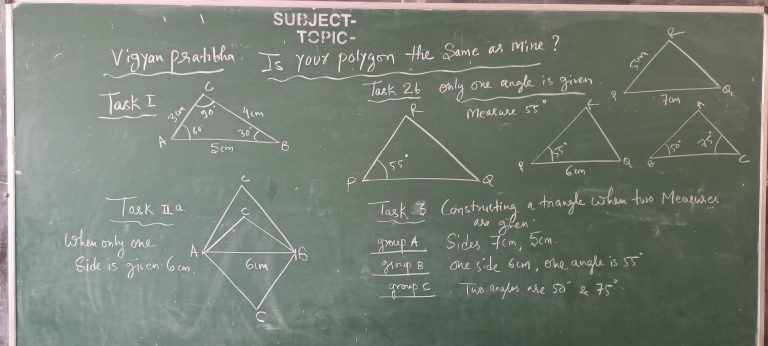 SUBJECT-
TOPIC-
Vigyan Pratibha Is your polygon the same as mine?
Task I
C
3cm 90° 4cm
60° 30°
A 5cm B
Task 2b only one angle is given.
Measure 55°
R
55°
P Q
R
5cm
P 7cm Q
R
55°
P 6cm Q
A
50° 75°
B C
Task II a
When only one
Side is given 6cm.
C
C
A 6cm B
C
Task 3 Constructing a triangle when two Measures
are given.
group A Sides 7cm, 5cm.
group B one side 6cm, one angle is 55°
group C Two angles are 50° & 75°.